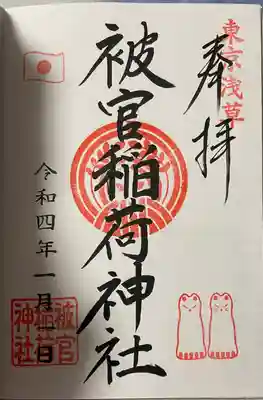 東京浅草
奉拝
被官稲荷神社
令和四年一月二日
被官稲荷神社